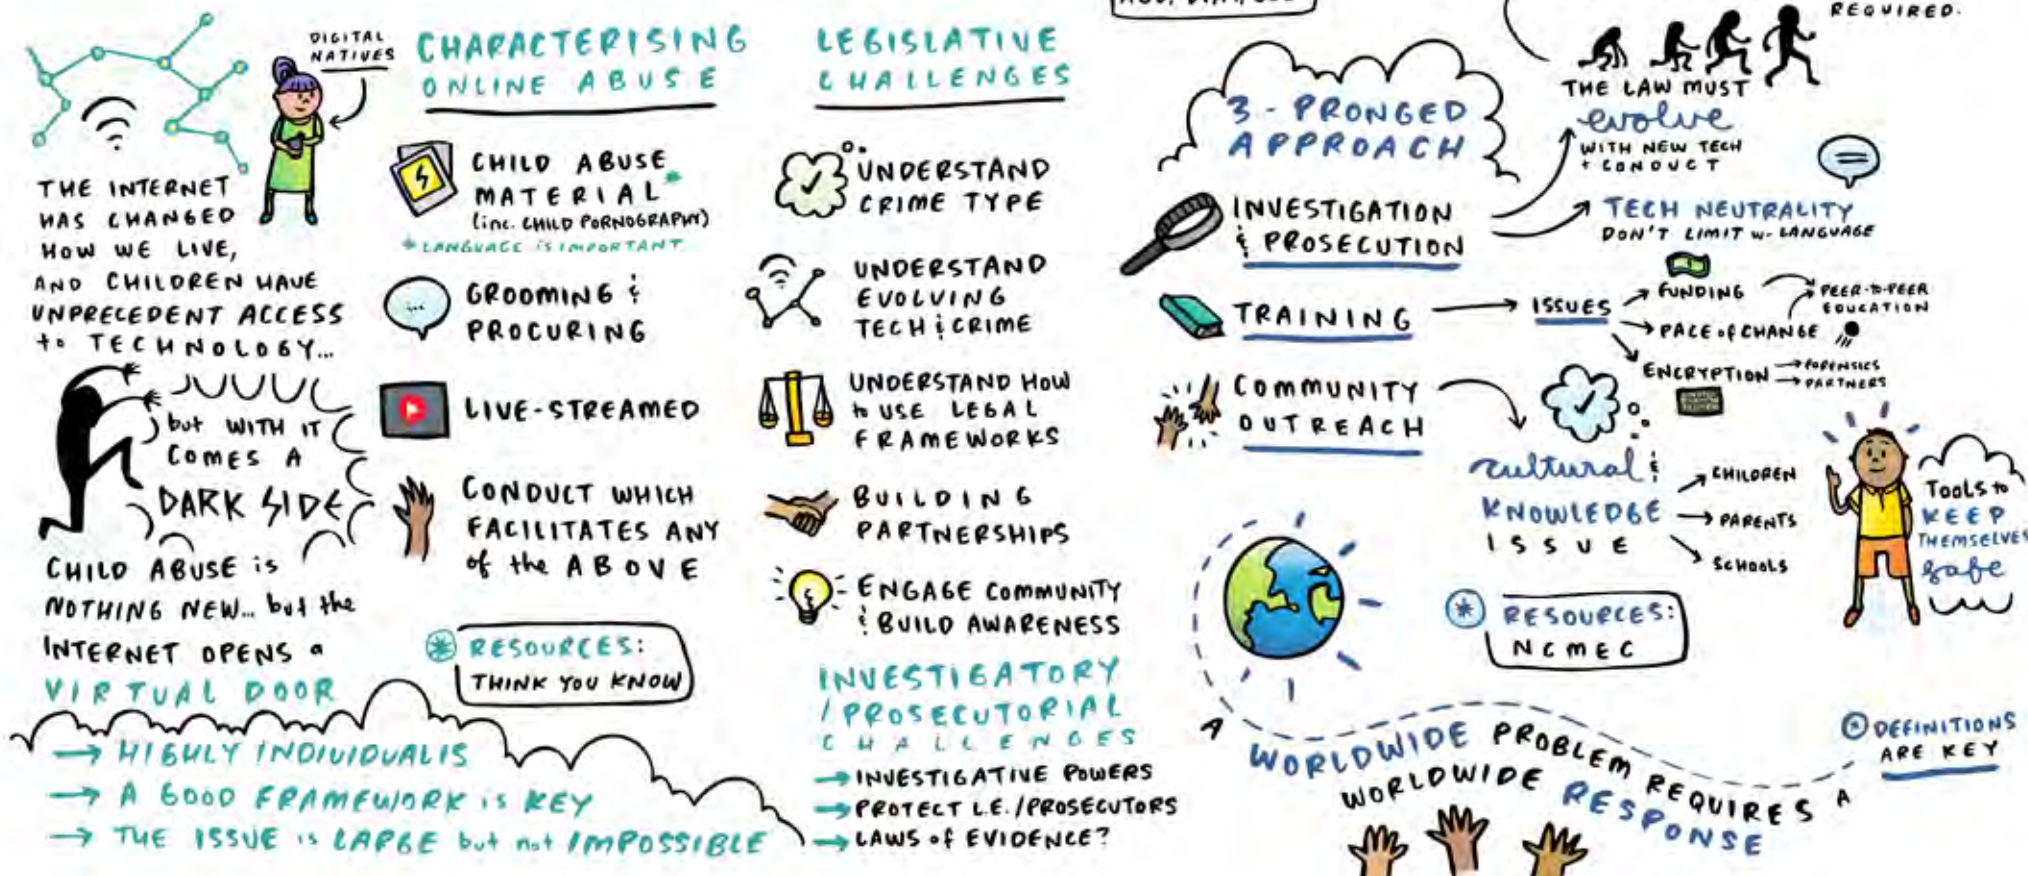 DIGITAL
NATIVES
THE INTERNET
HAS CHANGED
HOW WE LIVE,
AND CHILDREN HAVE
UNPRECEDENT ACCESS
to TECHNOLOGY...
but WITH IT
COMES A
DARK SIDE
CHILD ABUSE is
NOTHING NEW... but the
INTERNET OPENS a
VIRTUAL DOOR
→ HIGHLY INDIVIDUALIS
→ A GOOD FRAMEWORK is KEY
→ THE ISSUE is LARGE but not IMPOSSIBLE
CHARACTERISING
ONLINE ABUSE
CHILD ABUSE
MATERIAL*
(inc. CHILD PORNOGRAPHY)
* LANGUAGE is IMPORTANT
GROOMING &
PROCURING
LIVE-STREAMED
CONDUCT WHICH
FACILITATES ANY
of the ABOVE
* RESOURCES:
THINK YOU KNOW
LEGISLATIVE
CHALLENGES
UNDERSTAND
CRIME TYPE
UNDERSTAND
EVOLVING
TECH & CRIME
UNDERSTAND HOW
to USE LEGAL
FRAMEWORKS
BUILDING
PARTNERSHIPS
ENGAGE COMMUNITY
& BUILD AWARENESS
INVESTIGATORY
/PROSECUTORIAL
CHALLENGES
→ INVESTIGATIVE POWERS
→ PROTECT L.E./PROSECUTORS
→ LAWS of EVIDENCE?
3-PRONGED
APPROACH
INVESTIGATION
& PROSECUTION
REQUIRED.
THE LAW MUST
evolve
WITH NEW TECH
+ CONDUCT
TECH NEUTRALITY
DON'T LIMIT w- LANGUAGE
TRAINING
ISSUES
FUNDING
PACE of CHANGE
PEER-to-PEER
EDUCATION
ENCRYPTION
FORENSICS
PARTNERS
COMMUNITY
OUTREACH
cultural &
KNOWLEDGE
ISSUE
CHILDREN
PARENTS
SCHOOLS
TOOLS to
KEEP
THEMSELVES
safe
* RESOURCES:
NCMEC
A WORLDWIDE PROBLEM REQUIRES A
WORLDWIDE RESPONSE
* DEFINITIONS
ARE KEY